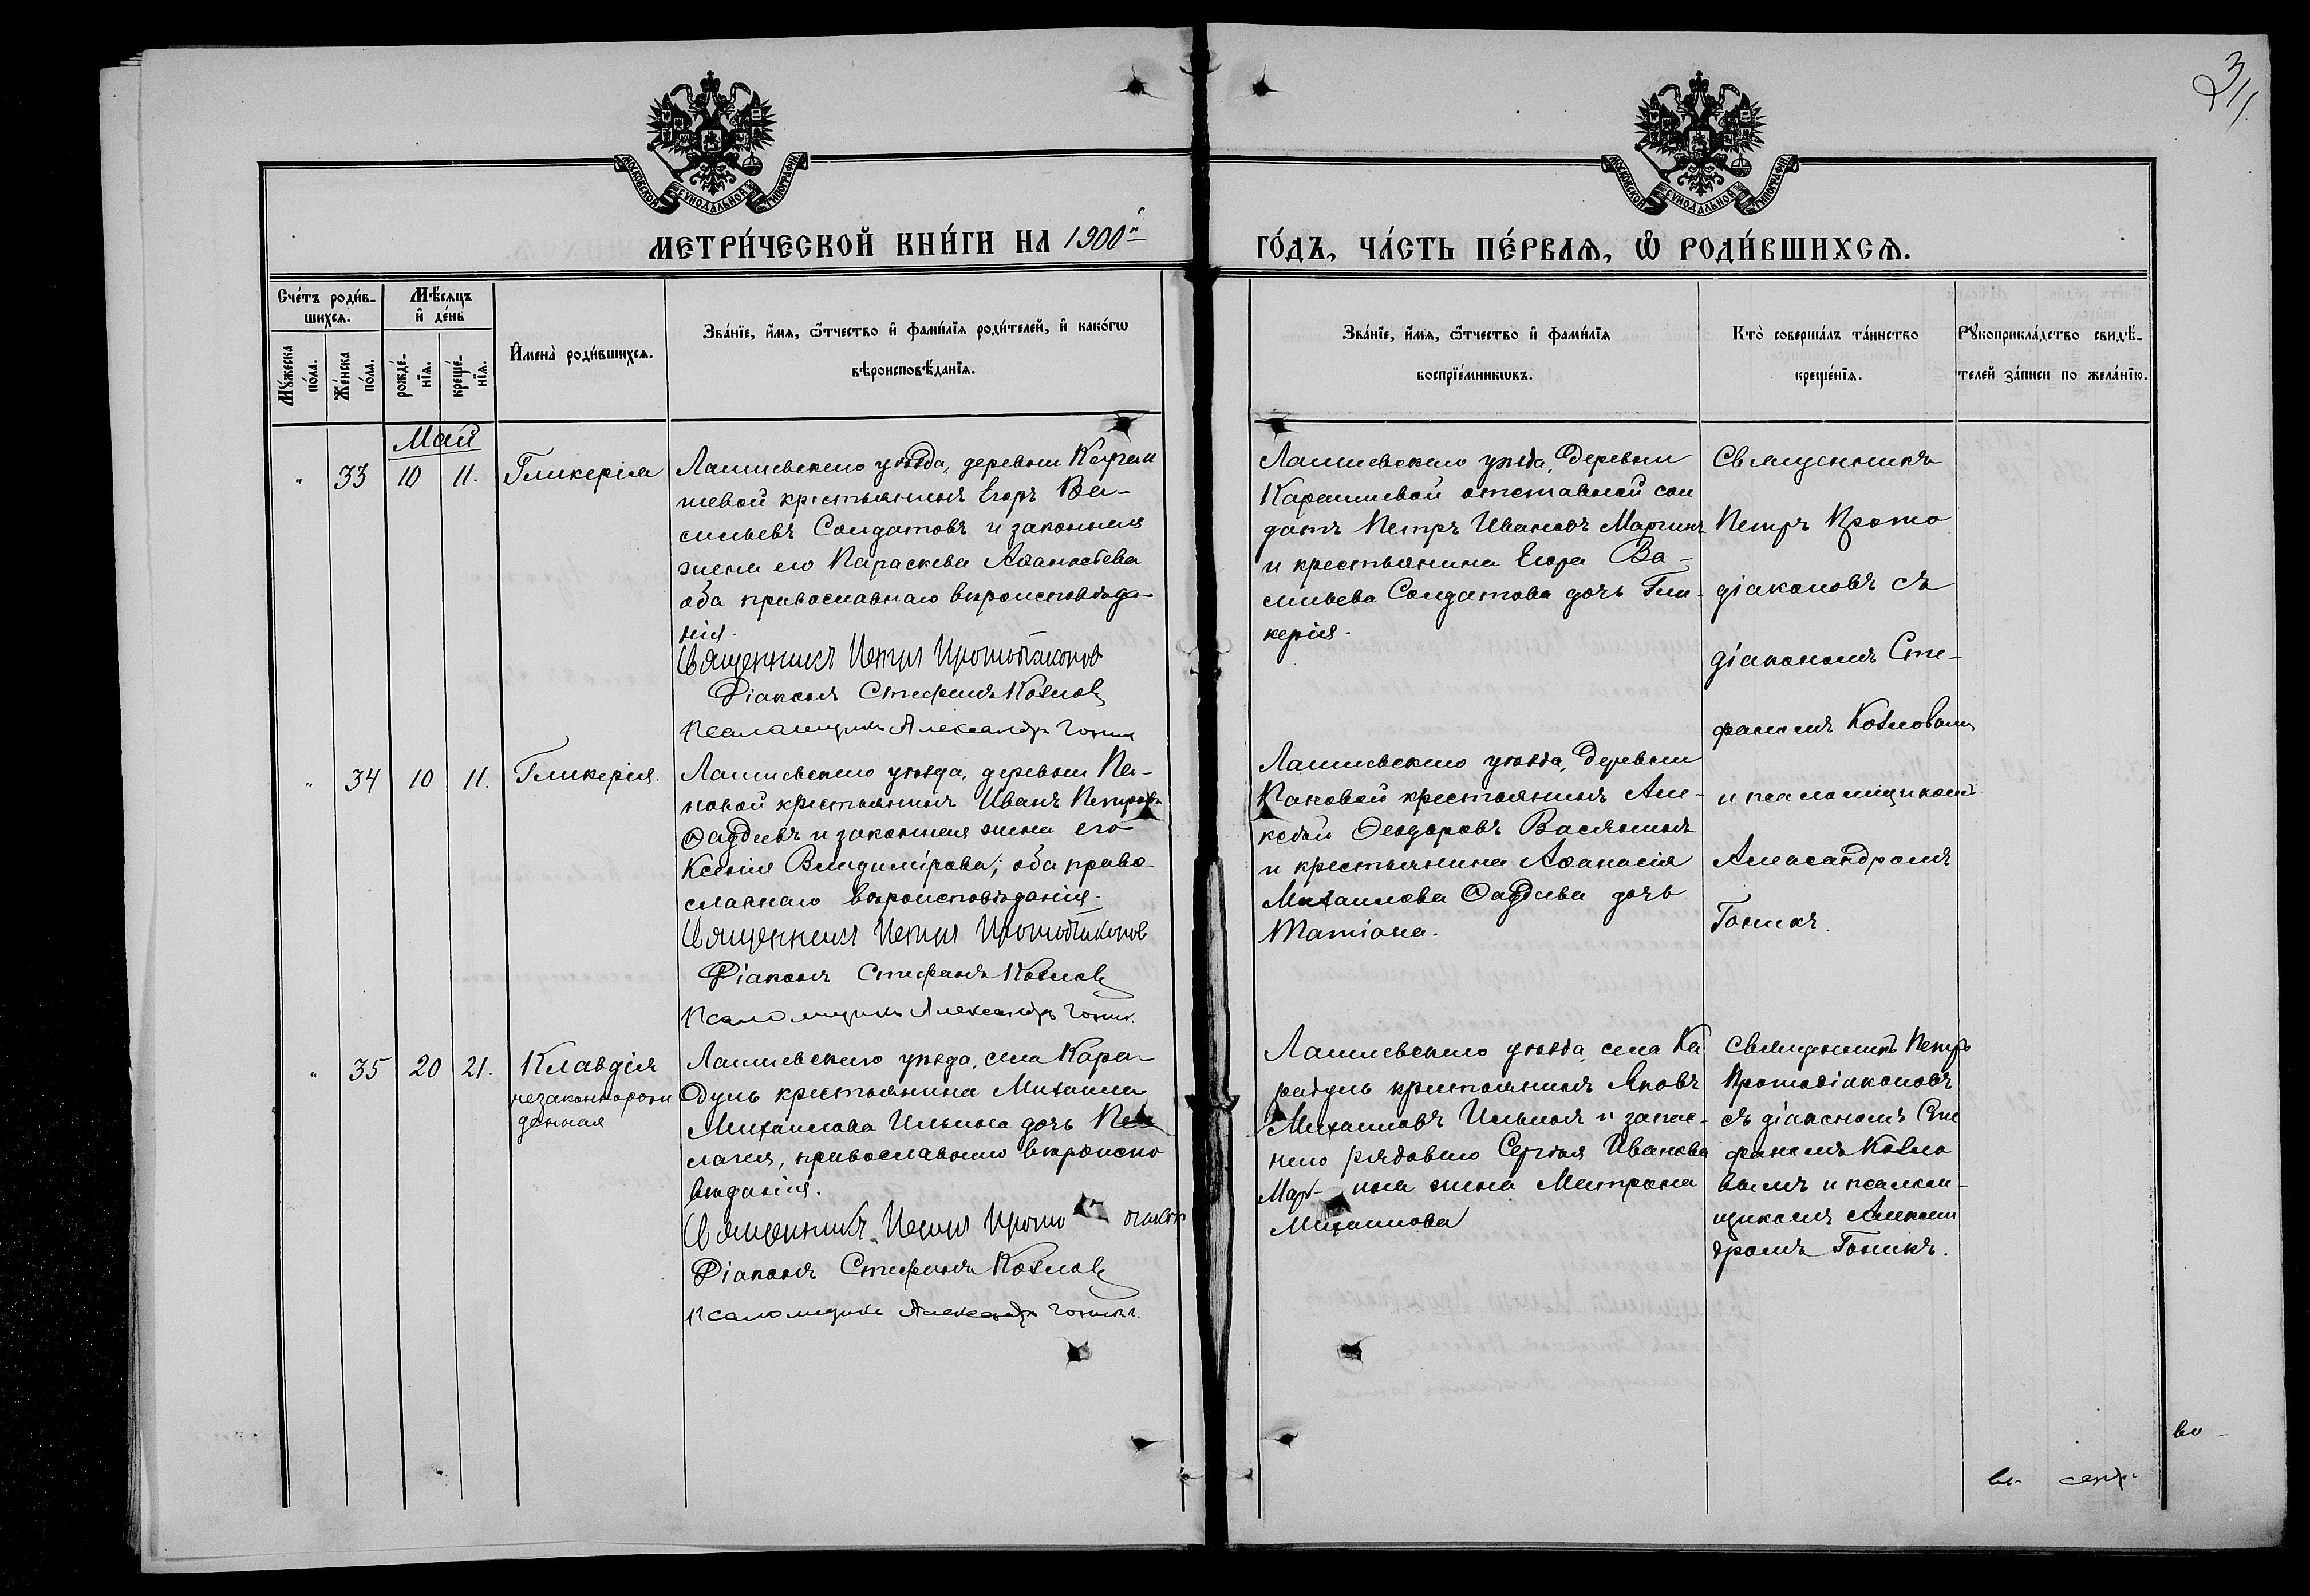 311
МОСКОВСКОЙ СѴНОДАЛЬНОЙ ТИПОГРАФІИ
МОСКОВСКОЙ СѴНОДАЛЬНОЙ ТИПОГРАФІИ
МЕТРИ́ЧЕСКОЙ КНИ́ГИ НА 1900й
ГО́ДЪ, ЧА́СТЬ ПЕ́РВАѦ, Ѡ РОДИ́ВШИХСѦ.
Сче́тъ роди́в-
шихсѧ.
Мꙋ́жеска
по́ла.
Же́нска
по́ла.
Мѣ́сѧцъ
и҆ де́нь
рожде́-
нїѧ.
креще́-
нїѧ.
И҆мена̀ роди́вшихсѧ.
Зва́нїе, и҆́мѧ, ѻ҆́тчество и҆ фами́лїѧ роди́телей, и҆ како́гѡ
вѣроисповѣ́данїѧ.
Зва́нїе, и҆́мѧ, ѻ҆́тчество и҆ фами́лїѧ
воспрїе́мникѡвъ.
Кто̀ соверша́лъ та́инство
креще́нїѧ.
Рꙋкоприкла́дство свидѣ́-
телей за́писи по жела́нїю.
Май
" 33 10 11. Гликерія
Лаишевскаго уѣзда, деревни Караи
шевой крестьянинъ Егоръ Ва-
сильевъ Солдатовъ и законная
жена его Параскева Аѳанасьева
оба православнаго вѣроисповѣда-
нія.
Священникъ Петръ Протодіаконов
Діаконъ Стефанъ Козлов
Псаломщикъ Александръ Гоник
Лаишевскаго уѣзда, деревни
Караишевой отставной сол
датъ Петръ Ивановъ Маринъ
и крестьянина Егора Ва-
сильева Солдатова дочь Гли-
керія.
Священникъ
Петръ Прото
діаконовъ съ
діакономъ Сте-
фаномъ Козловымъ
и псаломщикомъ
Александромъ
Гоникъ.
" 34 10 11. Гликерія.
Лаишевскаго уѣзда, деревни Па-
новой крестьянинъ Иванъ Петровъ
Ѳаддѣевъ и законная жена его
Ксенія Владимірова; оба право-
славнаго вѣроисповѣданія.
Священникъ Петръ Протодіаконов
Діаконъ Стефанъ Козлов
Псаломщикъ Александръ Гоник.
Лаишевскаго уѣзда, деревни
Пановой крестьянинъ Але-
ксѣй Ѳеодоровъ Васянинъ
и крестьянина Аѳанасія
Михаилова Ѳаддѣева дочь
Татіана.
" 35 20 21. Клавдія
незаконнорож
денная
Лаишевскаго уѣзда, села Кара-
дуль крестьянина Михаила
Михаилова Ильина дочь Пе
лагія, православнаго вѣроиспо
вѣданія.
Священникъ Петръ Прото діакон
Діаконъ Стефанъ Козлов
Псаломщикъ Александръ Гоник.
Лаишевскаго уѣзда, села Ка
радуль крестьянинъ Яковъ
Михаиловъ Ильинъ и запас-
наго рядоваго Сергѣя Иванова
Мар- ина жена Матрона
Михаилова
Священникъ Петръ
Протодіаконовъ
съ діакономъ Сте
фаномъ Козло
вымъ и псалом-
щикомъ Алексан
дромъ Гоникъ.
во-